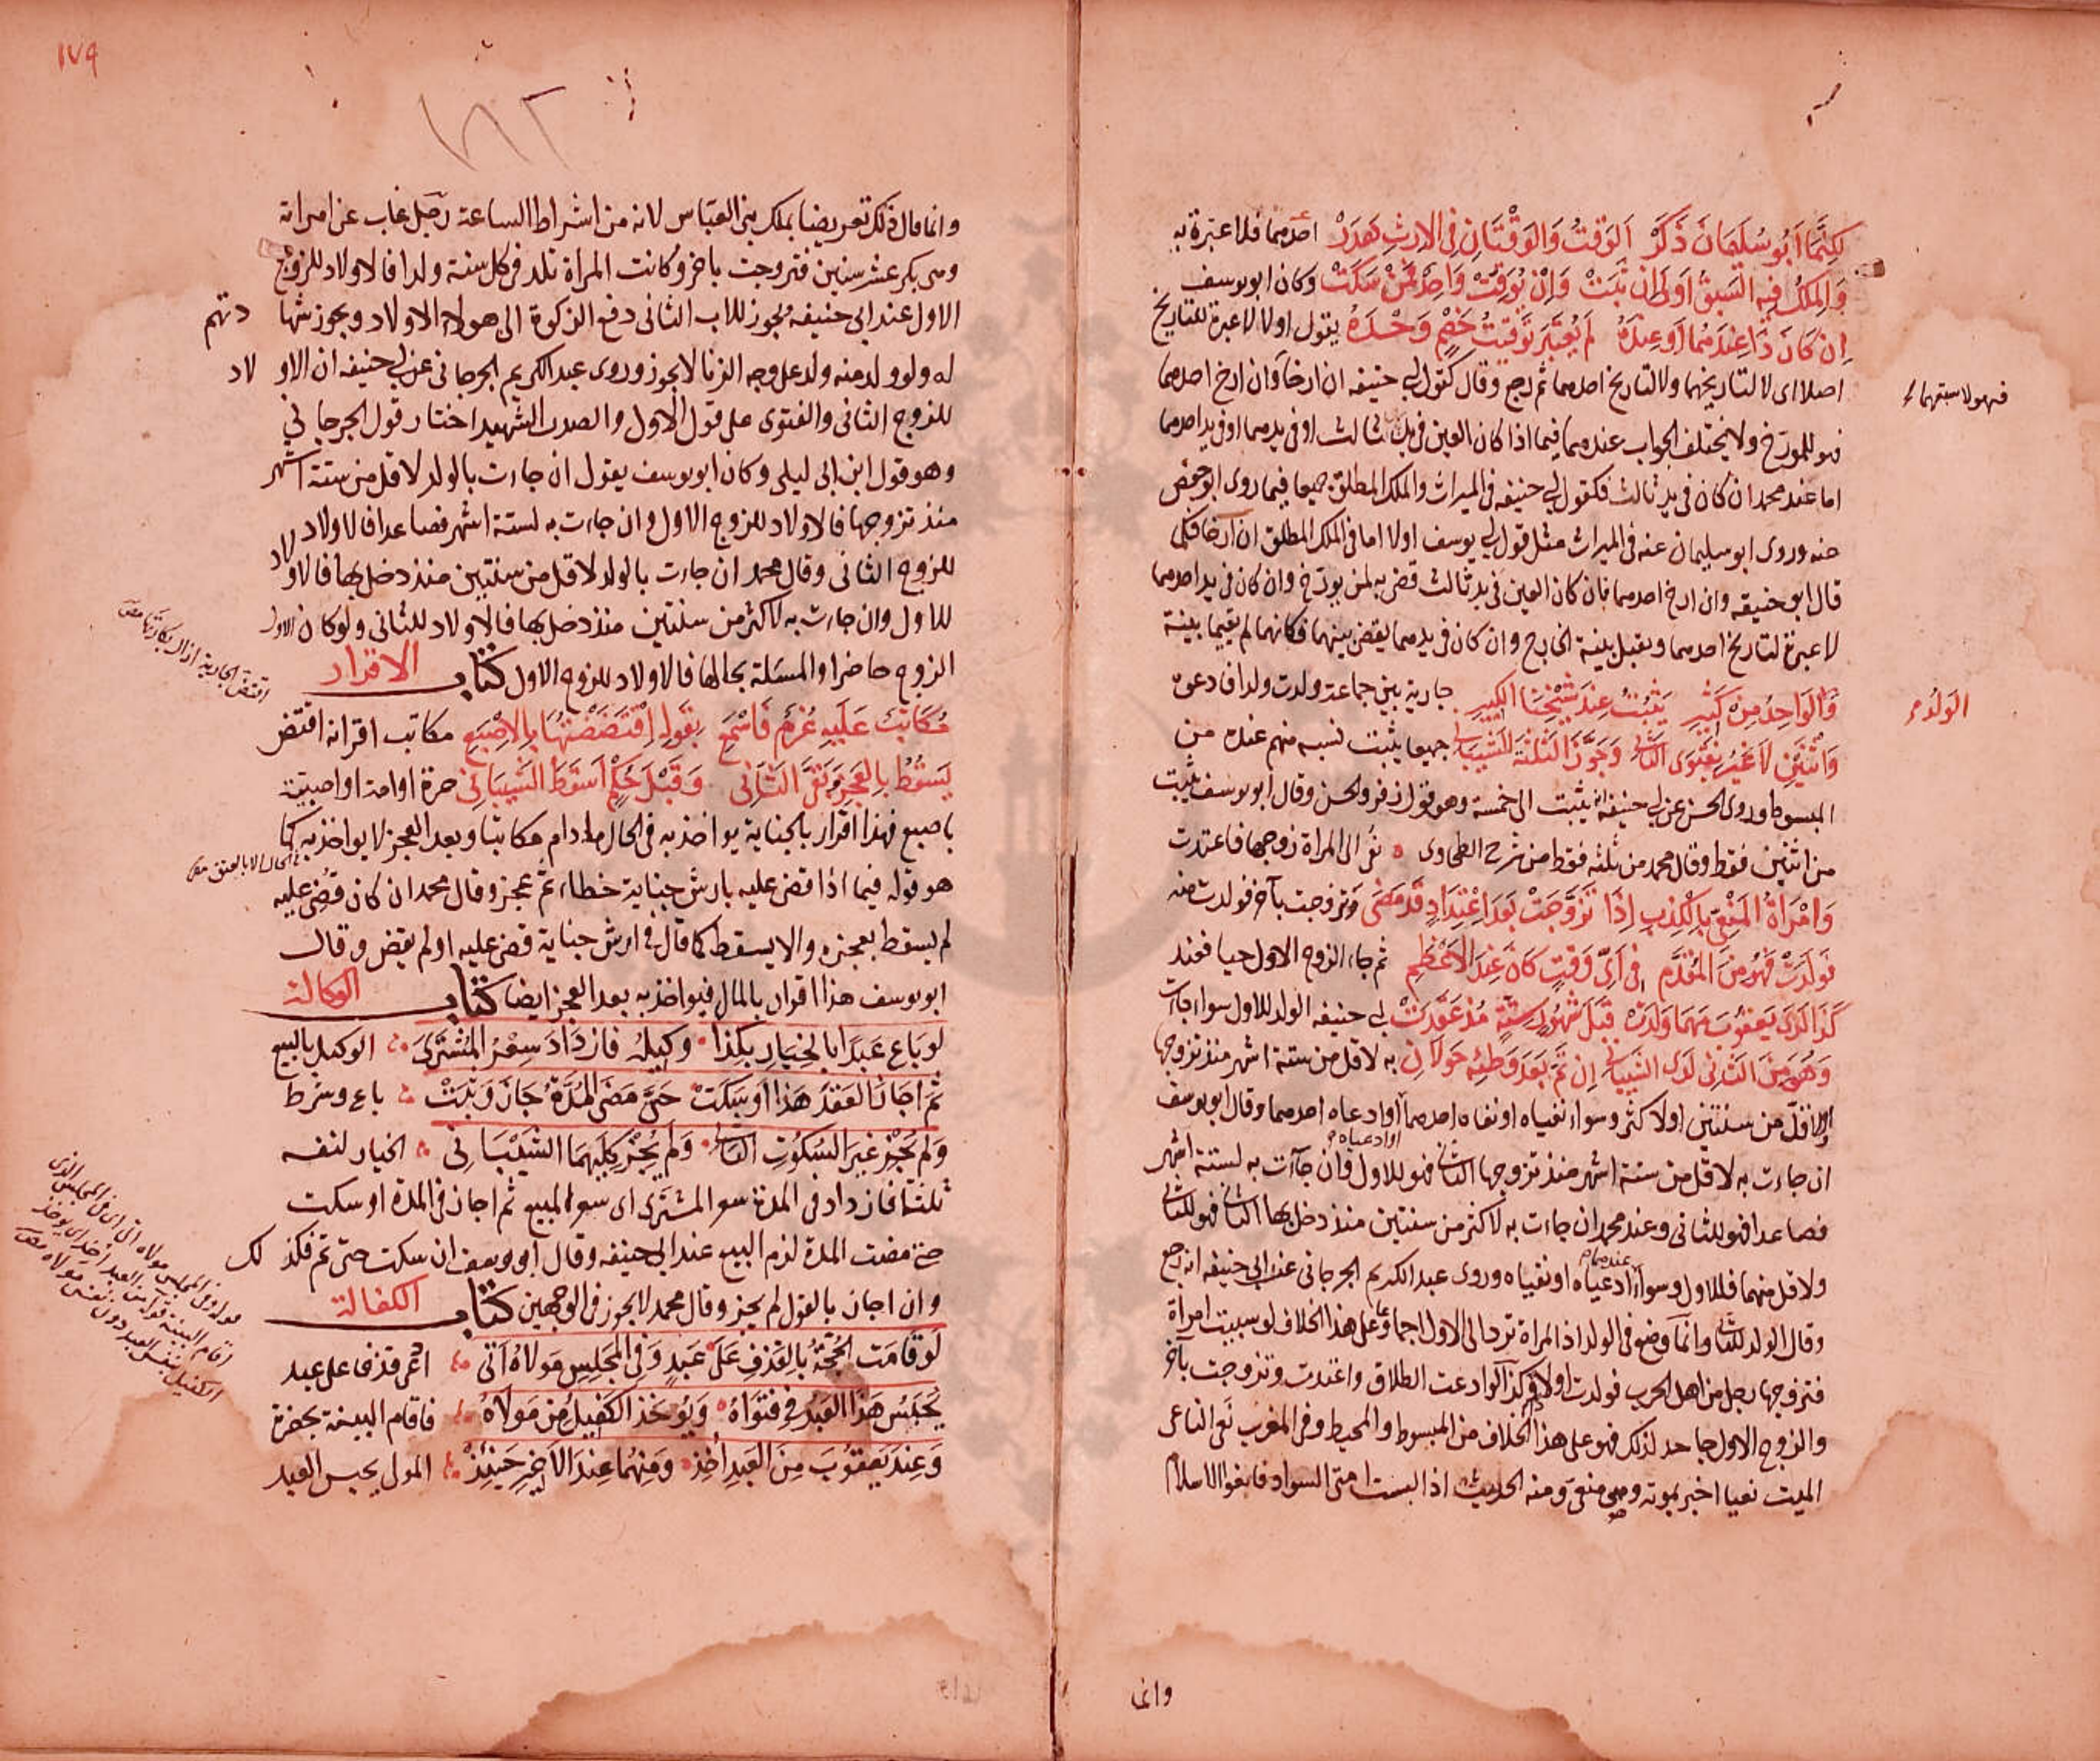 لكنما ابو سليمان ذكر الوقت والوقتان في الارث هدر احدهما فلا عبرة به
والملك فيه السبق اولى ان ثبت وان يوقت واحد لمن سكت وكان ابو يوسف
ان كان ذا عندهما او عنده لم يعتبر توقيت خصم وحده يقول اولا لا عبرة للتاريخ
اصلا اى لا لتاريخهما ولا لتاريخ احدهما ثم رجع وقال كقول ابي حنيفه ان ارخا وان ارخ احدهما
فهو للمورخ ولا يختلف الجواب عندهما فيما اذا كان العين في يد ثالث او في يدهما او في يد احدهما
اما عند محمد ان كان في يد ثالث فكقول ابي حنيفه في الميراث والملك المطلق جميعا فيما روى ابو حفص
عنه وروى ابو سليمان عنه في الميراث مثل قول ابي يوسف اولا اما في الملك المطلق ان ارخا فكما
قال ابو حنيفه وان ارخ احدهما فان كان العين في يد ثالث قضى به لمن يورخ وان كان في يد احدهما
لا عبرة لتاريخ احدهما ويقبل بينة الخارج وان كان في يدهما يقضى بينهما فكانهما لم يقيما بينة
والواحد من كثير يثبت عند شيخنا الكبير جارية بين جماعة ولدت ولدا فادعوه
واثنين لا غير بفتوى الثاني وجوز الثلثة الشيباني جميعا يثبت نسبه منهم عنده من
المبسوط وروى الحسن عن ابي حنيفة انه يثبت الى خمسة وهو قول زفر والحسن وقال ابو يوسف يثبت
من اثنين فقط وقال محمد من ثلثه فقط من شرح الطحاوى نعى الى المراة زوجها فاعتدت
وامراة المنعى بالكذب اذا تزوجت بعد اعتداد قد مضى وتزوجت بآخر فولدت منه
فولدت فهو من المقدم في اى وقت كان عند الاعظم ثم جاء الزوج الاول حيا فعند
كذا لدى يعقوب مهما ولدت قبل شهور ستة مذ عقدت ابي حنيفه الولد للاول سواء جاءت
وهو من الثاني لدى الشيباني ان تم بعد وطئه حولان به لاقل من ستة اشهر منذ تزوجها
او لاقل من سنتين او لاكثر وسواء نفياه او نفاه احدهما او ادعاه احدهما وقال ابو يوسف
او ادعياه
ان جاءت به لاقل من ستة اشهر منذ تزوجها الثاني فهو للاول وان جاءت به لستة اشهر
فصاعدا فهو للثاني وعند محمد ان جاءت به لاكثر من سنتين منذ دخل بها الثاني فهو للثاني
ولاقل منهما فللاول وسواء ادعياه او نفياه وروى عبد الكريم الجرجاني عن ابي حنيفه انه رجع
وقال الولد للثاني وانما وضع في الولد اذ المراة ترد الى الاول اجماعا وعلى هذا الخلاف لو سبيت امراة
فتزوجها رجل من اهل الحرب فولدت اولادا وكذا لو ادعت الطلاق واعتدت وتزوجت بآخر
والزوج الاول جاحد لذلك فهو على هذا الخلاف من المبسوط والمحيط وفي المغرب نعى الناعى
الميت نعيا اخبر بموته وهو منعى ومنه الحديث اذا لبست امتى السواد فانعوا الاسلام
وانما
فهو لاسبقهما
الولد
١٧٩
١٨٢
وانما قال ذلك تعريضا بملك بني العباس لانه من اشراط الساعة رجل غاب عن امراته
وهى بكر عشر سنين فتزوجت باخر وكانت المراة تلد في كل سنة ولدا فالاولاد للزوج
الاول عند ابي حنيفه ويجوز للاب الثاني دفع الزكوة الى هولاء الاولاد ويجوز شهادتهم
له ولو ولد منه ولد على وجه الزنا لا يجوز وروى عبد الكريم الجرجاني عن ابي حنيفه ان الاولاد
للزوج الثاني والفتوى على قول الاول والصدر الشهيد اختار قول الجرجاني
وهو قول ابن ابي ليلى وكان ابو يوسف يقول ان جاءت بالولد لاقل من ستة اشهر
منذ تزوجها فالاولاد للزوج الاول وان جاءت به لستة اشهر فصاعدا فالاولاد
للزوج الثاني وقال محمد ان جاءت بالولد لاقل من سنتين منذ دخل بها فالاولاد
للاول وان جاءت به لاكثر من سنتين منذ دخل بها فالاولاد للثاني ولو كان الاول
الزوج حاضرا والمسئلة بحالها فالاولاد للزوج الاول كتاب الاقرار
مكاتب عليه غرم فاسمع بقوله افتضضتها بالاصبع مكاتب اقر انه افتض
يسقط بالعجز ونفى الثاني وقبل حكم اسقط الشيباني حرة او امة او صبية
باصبع فهذا اقرار بالجناية يواخذ به في الحال ما دام مكاتبا وبعد العجز لا يواخذ به كما
هو قوله فيما اذا قضى عليه بارش جناية خطاء ثم عجز وقال محمد ان كان قضى عليه
لم يسقط بعجزه والا يسقط كما قال في ارش جناية قضى عليه او لم يقض وقال
ابو يوسف هذا اقرار بالمال فيواخذ به بعد العجز ايضا كتاب الوكالة
لو باع عبدا بالخيار بكذا وكيله فازداد سعر المشترى الوكيل بالبيع
ثم اجاز العقد هذا او سكت حتى مضى المدة جاز وثبت باع وشرط
ولم يجز غير السكوت الثاني ولم يجز كليهما الشيباني الخيار لنفسه
ثلثا فازداد في المدة سعر المشترى اى سعر المبيع ثم اجاز في المدة او سكت
حتى مضت المدة لزم البيع عند ابي حنيفه وقال ابو يوسف ان سكت حتى تم فكذلك
وان اجاز بالقول لم يجز وقال محمد لا يجوز في الوجهين كتاب الكفالة
لو قامت الحجة بالقذف على عبد وفي المجلس مولاه اتى ادعى قذفا على عبد
يحبس هذا العبد في فتواه ويوخذ الكفيل من مولاه فاقام البينة بحضرة
وعند يعقوب من العبد اخذ ومنهما عند الاخير حينئذ المولى يحبس العبد